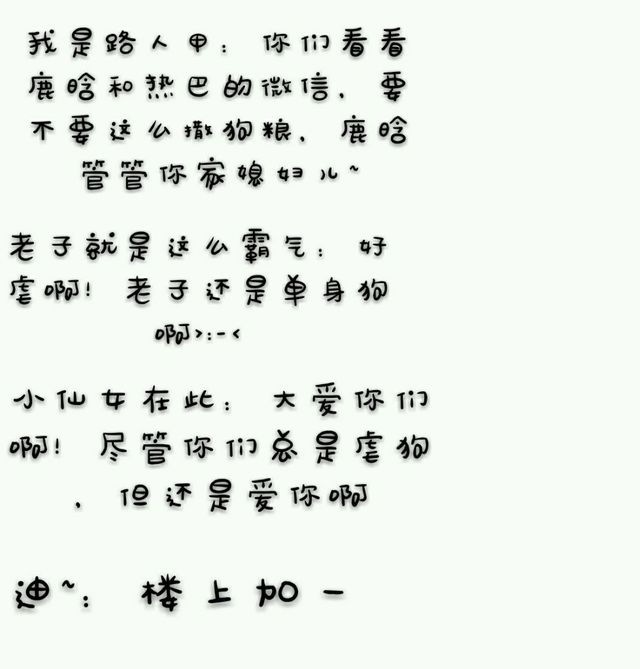 我是路人甲：你们看看
鹿晗和热巴的微信，要
不要这么撒狗粮，鹿晗
管管你家媳妇儿~
老子就是这么霸气：好
虐啊！老子还是单身狗
啊>:-<
小仙女在此：大爱你们
啊！尽管你们总是虐狗
，但还是爱你啊
迪~：楼上加一